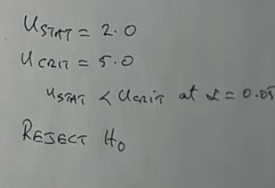 USTAT = 2.0
UCRIT = 5.0
USTAT < UCRIT at α = 0.05
REJECT H0